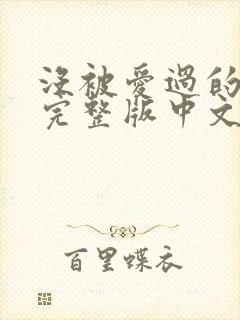 沒被愛過的
完整版中文
百里蝶衣